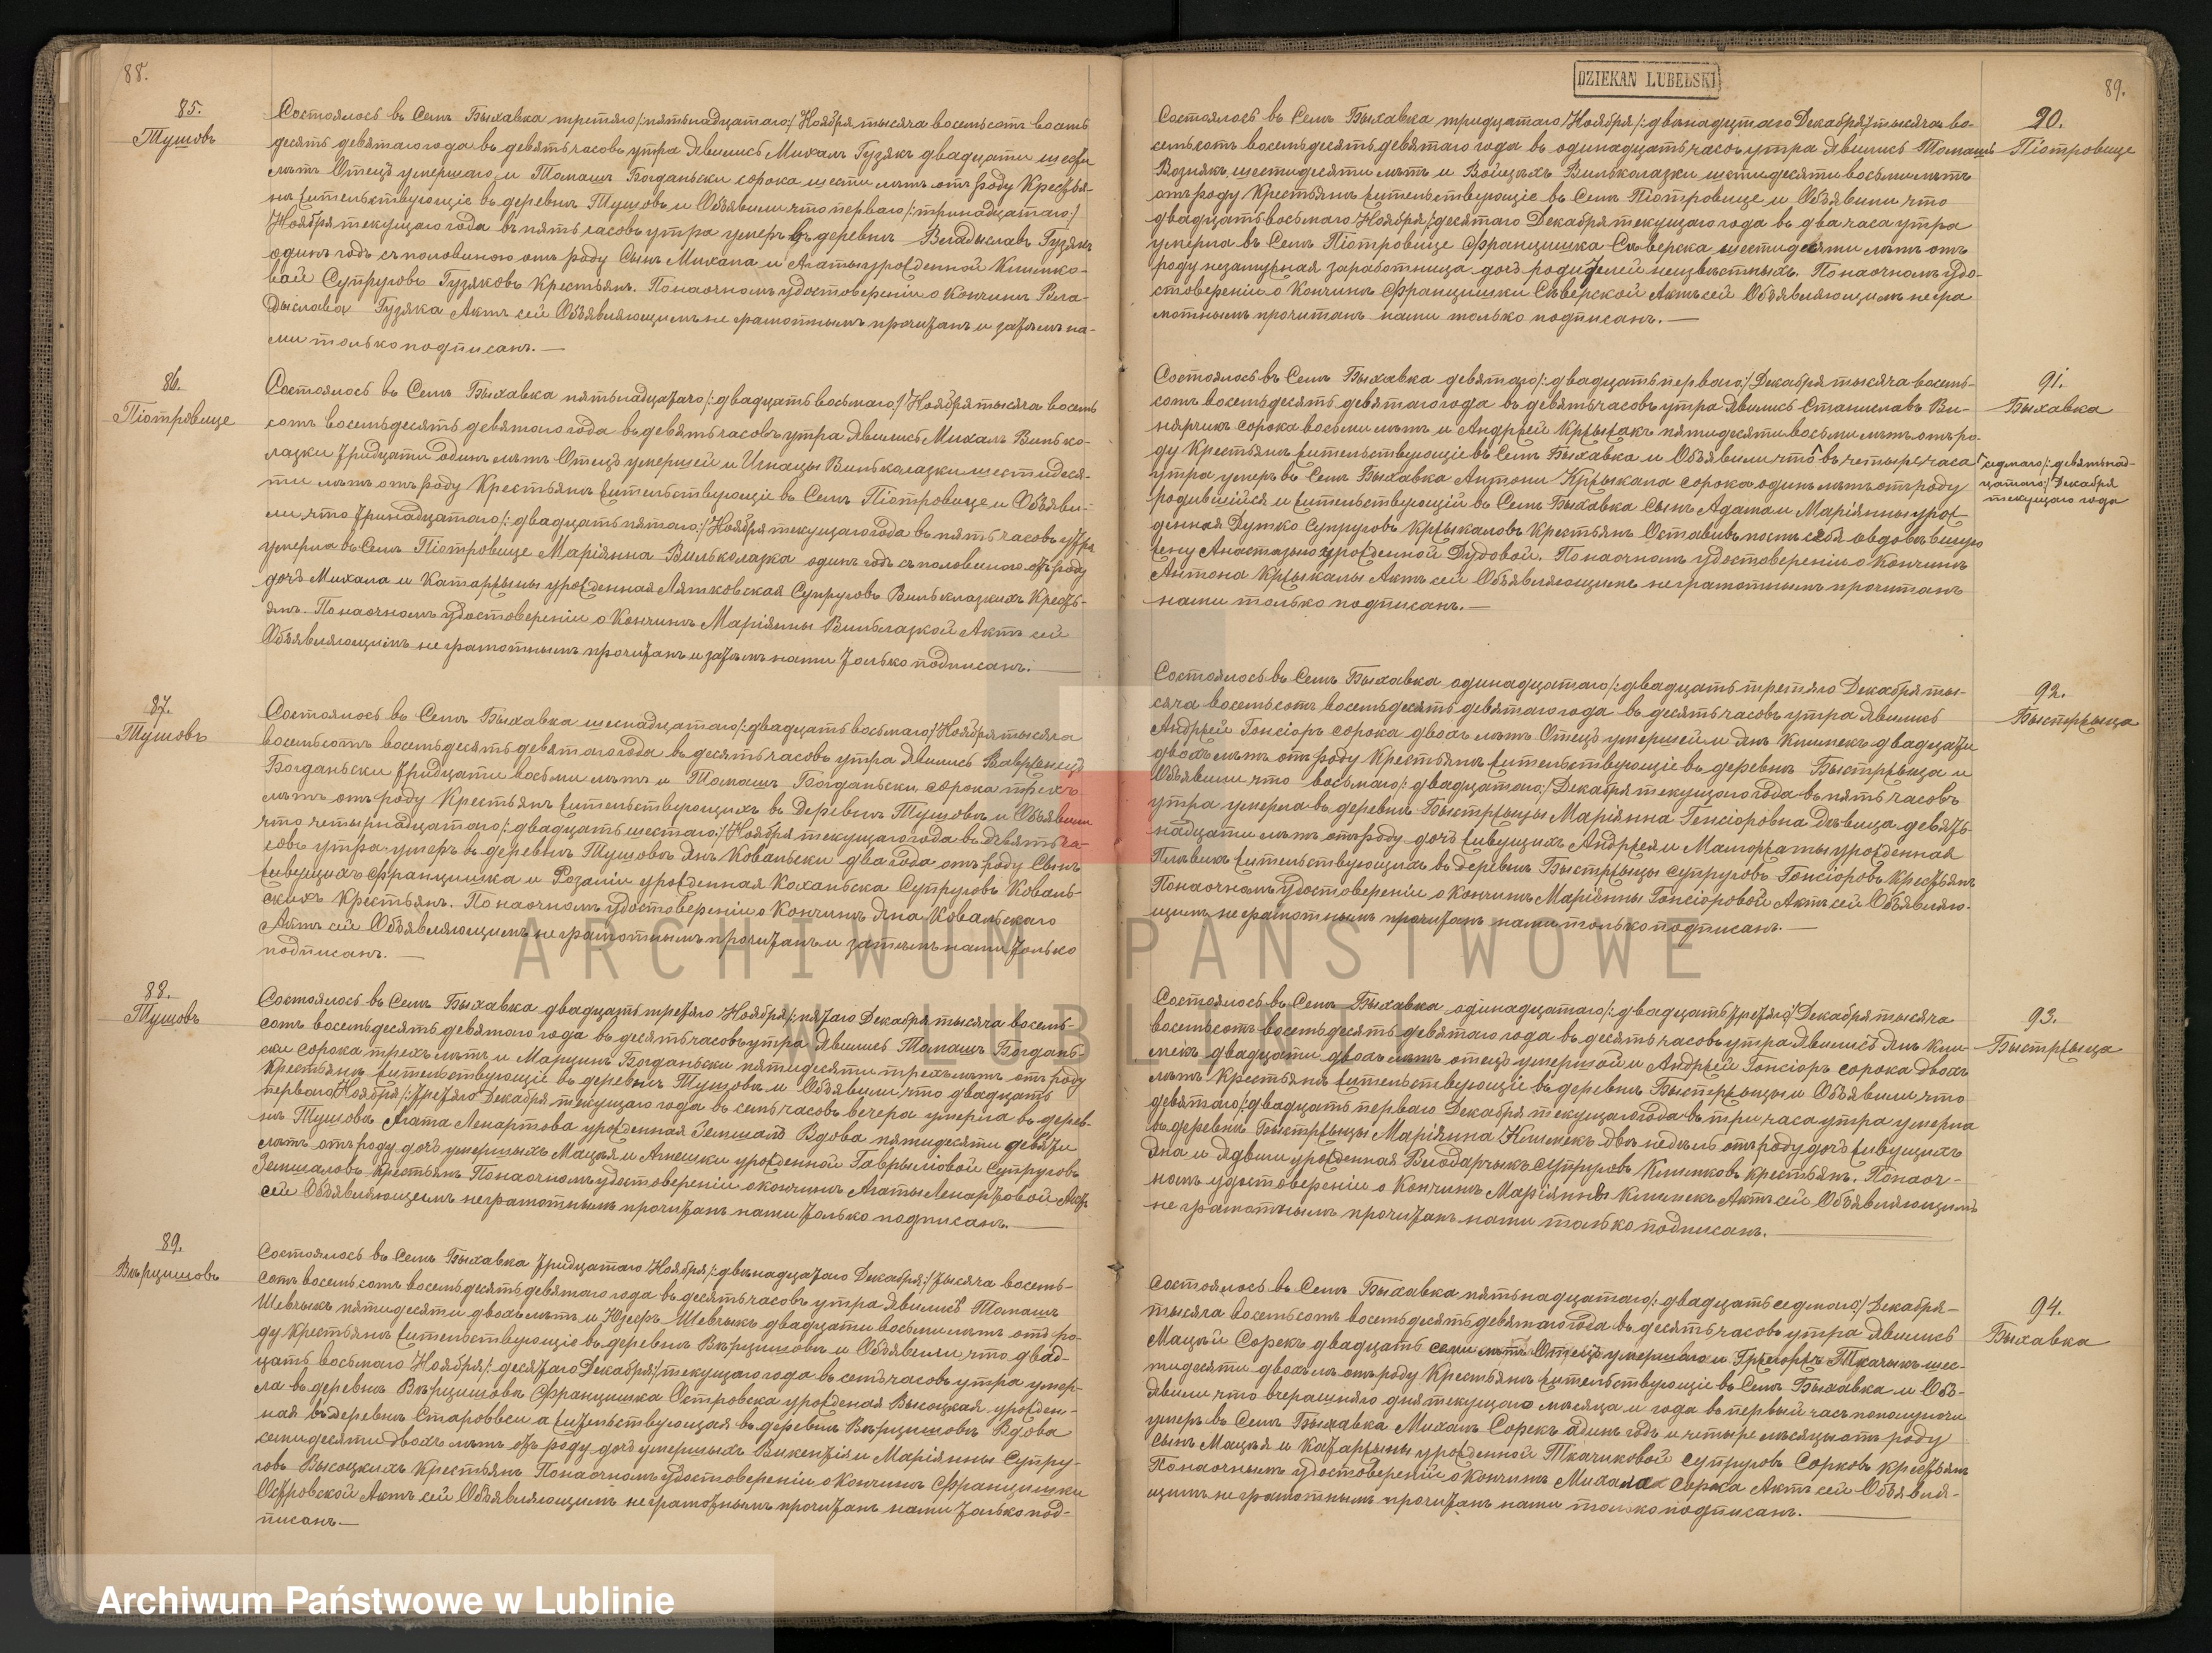 88.
85.
Тушовъ
Состоялось въ Селѣ Быхавка третяго/:пятьнадцатаго:/ Ноября тысяча восемьсотъ восемь
десять девятаго года въ девять часовъ утра Явились Михалъ Гузякъ двадцати шести
лѣтъ Отецъ умершаго, и Томашъ Богданьски сорока шести лѣтъ отъ роду Крестья-
не жительствующіе въ деревнѣ Тушовъ и Объявили что перваго/:тринадцатаго:/
Ноября текущаго года въ пять часовъ утра умеръ въ деревнѣ Владыславъ Гузякъ
одинъ годъ съ половиною отъ роду Сынъ Михала и Агаты урожденной Климко-
вой Супруговъ Гузяковъ Крестьянъ. По наочномъ удостовереніи о Кончинѣ Вла-
дыслава Гузяка Актъ сей Объявляющимъ не грамотнымъ прочитанъ и затѣмъ на-
ми только подписанъ.—
86.
Піотровице
Состоялось въ Селѣ Быхавка пятьнадцатаго/:двадцать восьмаго:/ Ноября тысяча восемь
сотъ восемьдесять девятаго года въ девять часовъ утра Явились Михалъ Вилько-
лазки тридцати одинъ лѣтъ Отецъ умершей и Игнацы Вильколазки шестидеся-
ти лѣтъ отъ роду Крестьянѣ жительствующіе въ Селѣ Піотровице и Объяви-
ли что тринадцатаго/:двадцать пятаго:/ Ноября текущаго года въ пять часовъ утра
умерла въ Селѣ Піотровице Маріянна Вильколазка одинъ годъ съ половиною отъ роду
дочь Михала и Катаржыны урожденная Ляшковская Супруговъ Вильклазкихъ Кресть-
янъ. По наочномъ удостовереніи о Кончинѣ Маріянны Вильлазкой Актъ сей
Объявляющимъ не грамотнымъ прочитанъ и затѣмъ нами только подписанъ.—
87.
Тушовъ
Состоялось въ Селѣ Быхавка шеснадцатаго/:двадцать восьмаго:/ Ноября тысяча
восемьсотъ восемьдесять девятаго года въ десять часовъ утра Явились Вавржынецъ
Богданьски тридцати восьми лѣтъ и Томашъ Богданьски сорока трехъ
лѣтъ отъ роду Крестьянъ жительствующихъ въ Деревнѣ Тушовъ и Объявили
что четырнадцатаго/:двадцать шестаго:/ Ноября текущаго года въ девять ча-
совъ утра умеръ въ деревнѣ Тушовъ Янъ Ковальски два года отъ роду Сынъ
живущихъ Францишка и Розаліи урожденная Коханьска Супруговъ Коваль-
скихъ Крестьянъ. По наочномъ удостовереніи о Кончинѣ Яна Ковальскаго
Актъ сей Объявляющимъ не грамотнымъ прочитанъ и затѣмъ нами только
подписанъ.—
88.
Тушовъ
Состоялось въ Селѣ Быхавка двадцать третяго Ноября/:пятаго Декабря тысяча восемь-
сотъ восемьдесять девятаго года въ десять часовъ утра Явились Томашъ Богдань-
ски сорока трехъ лѣтъ и Марцинъ Богданьски пятидесяти трехъ лѣтъ отъ роду
Крестьянѣ жительствующіе въ деревнѣ Тушовъ и Объявили что двадцать
перваго Ноября/:третяго Декабря текущаго года въ семь часовъ вечера умерла въ дерев-
нѣ Тушовъ Агата Ленартова урожденная Земшалъ Вдова пятидесяти девяти
лѣтъ отъ роду дочь умершыхъ Мацѣя и Агнешки урожденной Гаврыловой Супруговъ
Земшаловъ Крестьянъ По наочномъ удостовереніи о кончинѣ Агаты Ленартовой Актъ
сей Объявляющимъ неграмотнымъ прочитанъ нами только подписанъ.—
89.
Вѣрцишовъ
Состоялось въ Селѣ Быхавка тридцатаго Ноября/:двѣнадцатаго Декабря:/ тысяча восемь-
сотъ восемь сотъ восемьдесять девятаго года въ десять часовъ утра Явились Томашъ
Шевчыкъ пятидесяти двохъ лѣтъ и Юзефъ Шевчыкъ двадцати восьми лѣтъ отъ ро-
ду Крестьянѣ жительствующіе въ деревнѣ Вѣрцишовъ и Объявили что двад-
цать восьмаго Ноября/:десятаго Декабря:/ текущаго года въ семь часовъ утра умер-
ла въ деревнѣ Вѣрцишовъ Францишка Островска урожденая Высоцкая урожден-
ная въ деревнѣ Старовёси а жительствующая въ деревнѣ Вѣрцишовъ Вдова
семидесяти двохъ лѣтъ отъ роду дочь умершыхъ Викентія и Маріянны Супру-
говъ Высоцкихъ Крестьянъ По наочномъ удостовереніи о Кончинѣ Францишки
Островской Актъ сей Объявляющимъ неграмотнымъ прочитанъ нами только под-
писанъ.—
DZIEKAN LUBELSKI
89.
90.
Піотровице
Состоялось въ Селѣ Быхавка тридцатаго Ноября/:двѣнадцатаго Декабря/ тысяча во-
семьсотъ восемьдесять девятаго года въ одинадцать часовъ утра Явились Томашъ
Вознякъ шестидесяти лѣтъ и Войцѣхъ Вильколазки шестидесяти восьми лѣтъ
отъ роду Крестьянѣ жительствующіе въ Селѣ Піотровице и Объявили что
двадцать восьмаго Ноября/:десятаго Декабря текущаго года въ два часа утра
умерла въ Селѣ Піотровице Францишка Сѣверска шестидесяти лѣтъ отъ
роду незамужная заработница дочь родителей неизвѣстныхъ. По наочномъ удо-
стовереніи о Кончинѣ Францишки Сѣверской Актъ сей Объявляющимъ негра
мотнымъ прочитанъ нами только подписанъ.—
91.
Быхавка
Состоялось въ Селѣ Быхавка девятаго/:двадцать перваго:/ Декабря тысяча восемь-
сотъ восемьдесять девятаго года въ девять часовъ утра Явились Станиславъ Ви-
нярчикъ сорока восьми лѣтъ и Андржей Кржыжакъ пятидесяти восьми лѣтъ отъ ро-
ду Крестьянѣ жительствующіе въ Селѣ Быхавка и Объявили что въ четыре часа
седмаго/:девятьнад-
цатаго:/ Декабря
текущаго года
утра умеръ въ Селѣ Быхавка Антони Кржыкала сорока одинъ лѣтъ отъ роду
родившійся и жительствующій въ Селѣ Быхавка Сынъ Адама и Маріянны урож-
денная Дутко Супруговъ Кржыкаловъ Крестьянъ Оставивъ послѣ себя овдовѣвшую
жену Анастазію урожденной Дудовой. По наочномъ удостовереніи о Кончинѣ
Антона Кржыкалы Актъ сей Объявляющимъ неграмотнымъ прочитанъ
нами только подписанъ.—
92.
Быстржыца
Состоялось въ Селѣ Быхавка одинадцатаго/:двадцать третяго Декабря ты-
сяча восемьсотъ восемьдесять девятаго года въ десять часовъ утра Явились
Андржей Гонсіоръ сорока двохъ лѣтъ Отецъ умершей и Янъ Климекъ двадцати
двохъ лѣтъ отъ роду Крестьянѣ жительствующіе въ деревнѣ Быстржыца и
Объявили что восьмаго/:двадцатаго:/ Декабря текущаго года въ пять часовъ
утра умерла въ деревнѣ Быстржыцы Маріянна Генсіоровна дѣвица девять-
надцати лѣтъ отъ роду дочь живущихъ Андржея и Малгоржаты урожденная
Плавикъ жительствующихъ въ деревнѣ Быстржыцы супруговъ Гонсіоровъ Крестьянъ
По наочномъ удостовереніи о Кончинѣ Маріянны Гонсіоровой Актъ сей Объявляю-
щимъ неграмотнымъ прочитанъ нами только подписанъ.—
93.
Быстржыца
Состоялось въ Селѣ Быхавка одинадцатаго/:двадцать третяго:/ Декабря тысяча
восемьсотъ восемьдесять девятаго года въ десять часовъ утра Явились Янъ Кли-
мекъ двадцати двохъ лѣтъ отецъ умершой и Андржей Гонсіоръ сорока двохъ
лѣтъ Крестьянѣ жительствующіе въ деревнѣ Быстржыцы и Объявили что
девятаго/:двадцать перваго Декабря текущаго года въ три часа утра умерла
въ деревнѣ Быстржыцы Маріянна Климекъ двѣ недѣль отъ роду дочь живущихъ
Яна и Ядвиги урожденная Влодарчыкъ Супруговъ Климковъ крестьянъ. По наоч-
номъ удостовереніи о Кончинѣ Маріянны Климекъ Актъ сей Объявляющимъ
неграмотнымъ прочитанъ нами только подписанъ.—
94.
Быхавка
Состоялось въ Селѣ Быхавка пятьнадцатаго/:двадцать седмаго:/ Декабря-
тысяча восемьсотъ восемьдесять девятаго года въ десять часовъ утра Явились
Мацѣй Сорекъ двадцать семи лѣтъ Отецъ умершаго и Гржегоржъ Ткачыкъ шес-
тидесяти двохъ лѣтъ отъ роду Крестьянѣ жительствующіе въ Селѣ Быхавка и Объ-
явили что вчерашняго дня текущаго мѣсяца и года въ первый часъ пополуночи
умеръ въ Селѣ Быхавка Михалъ Сорекъ одинъ годъ и четыре мѣсяцы отъ роду
сынъ Мацѣя и Катаржыны урожденной Ткачиковой супруговъ Сорковъ крестьянъ
По наочнымъ удостовереніи о Кончинѣ Михала Сорека Актъ сей Объявля-
ющимъ неграмотнымъ прочитанъ нами только подписанъ.—
ARCHIWUM PAŃSTWOWE
W LUBLINIE
Archiwum Państwowe w Lublinie